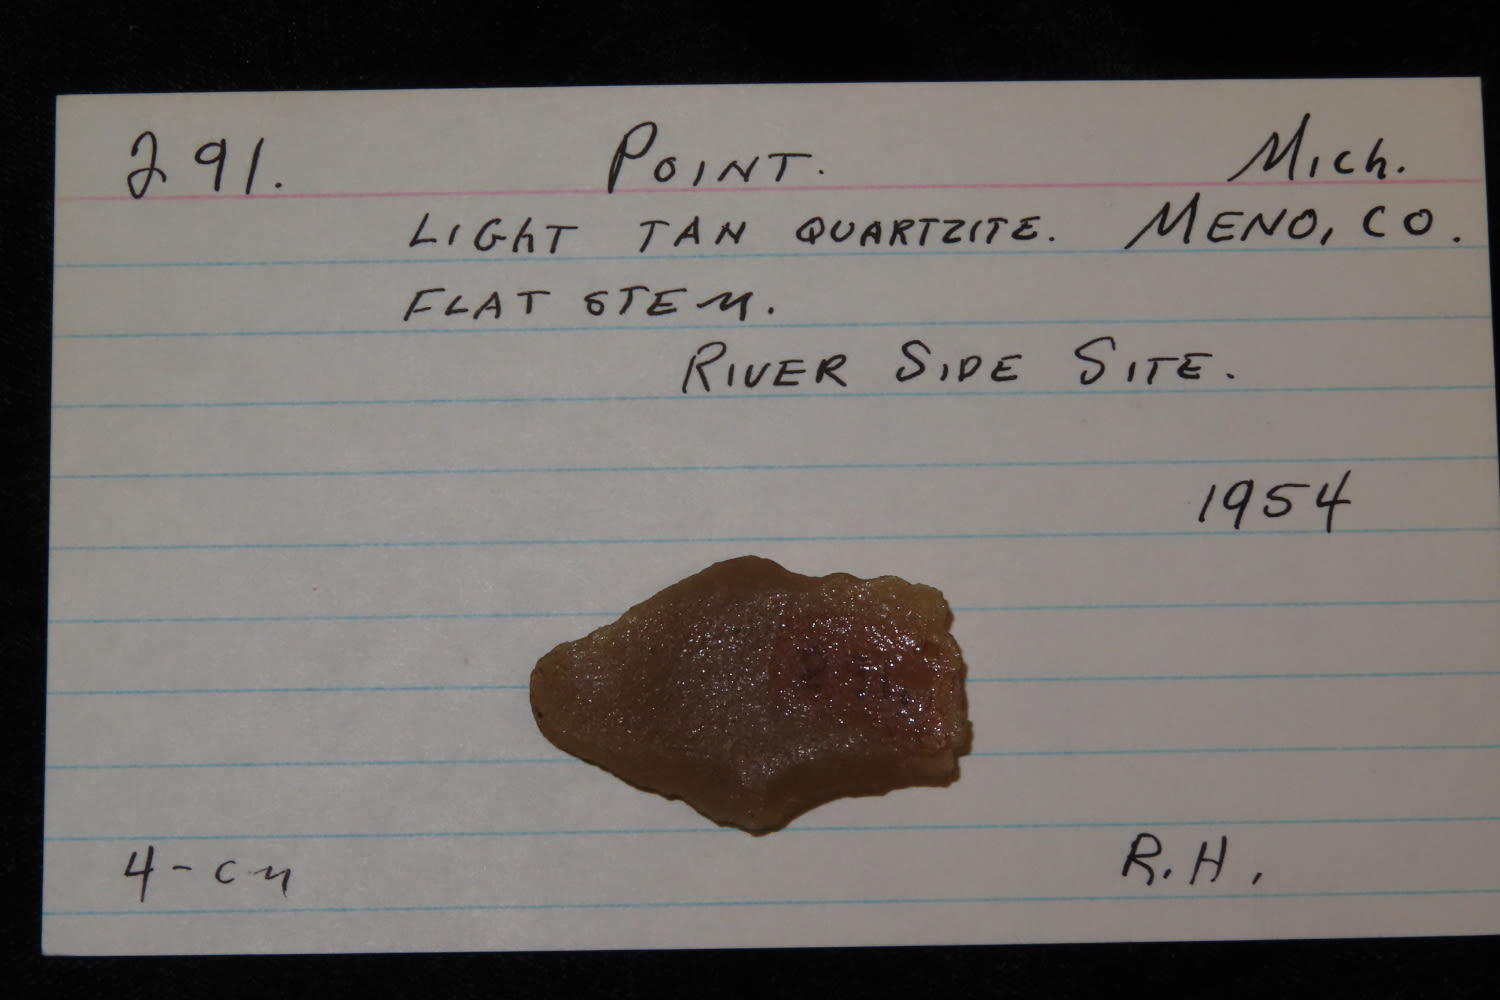 291. POINT. Mich.
LIGhT TAN QUARTZITE. MENO, CO.
FLAT STEM.
RIVER SIDE SITE.
1954
4-cm R.H.